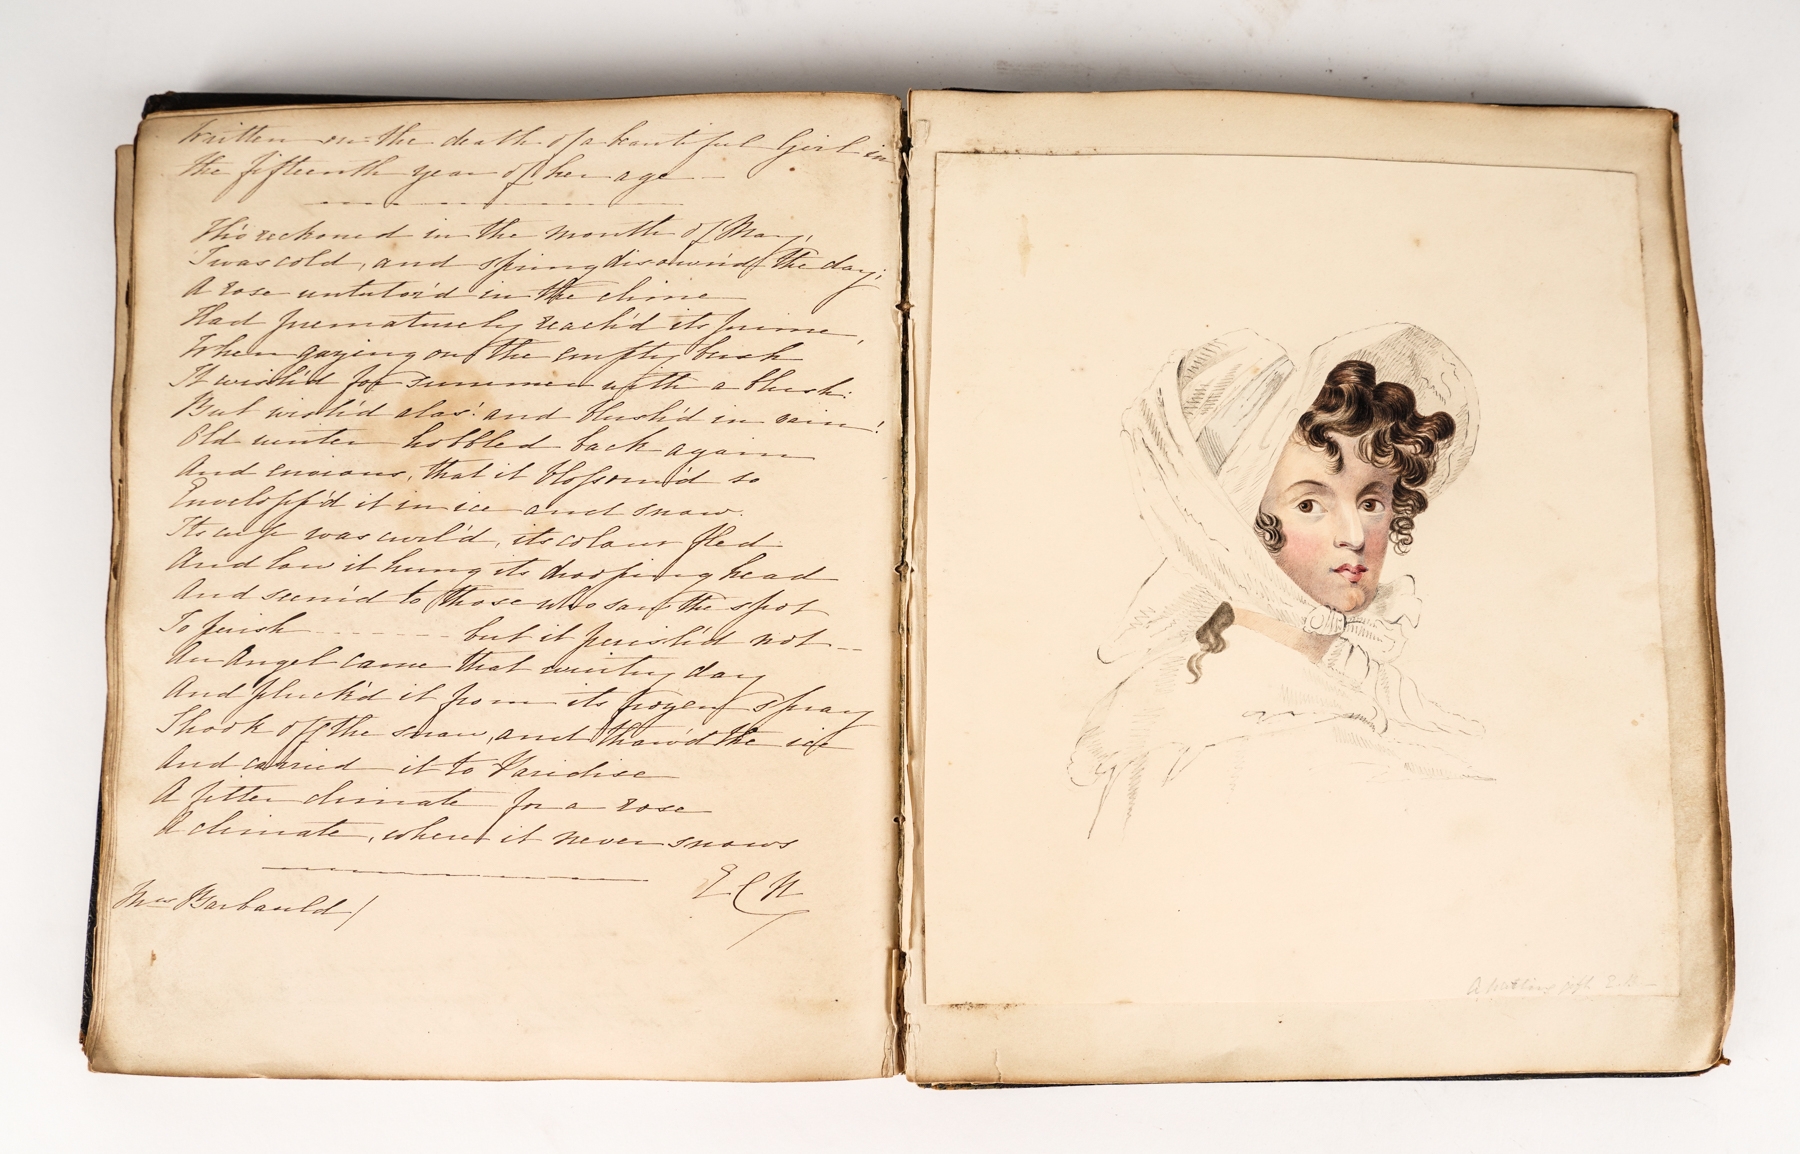 Written on the death of a beautiful Girl in
the fifteenth year of her age
Tho' reckoned in the month of May,
Twas cold, and spring disown'd the day;
A rose untutor'd in the clime
Had prematurely reach'd its prime,
When gazing on the empty bush
It wish'd for summer with a blush:
But wish'd alas! and blush'd in vain!
Old winter hobbled back again
And envious, that it blossom'd so
Envelopp'd it in ice and snow.
Its cup was curl'd, its colour fled
And low it hung its drooping head
And seem'd to those who saw the spot
To perish - - - - - - - but it perish'd not --
An Angel came that wintry day
And pluck'd it from its frozen spray
Shook off the snow, and thaw'd the ice
And carried it to Paradise
A fitter climate for a rose
A climate, where it never snows
E C N
Mrs Barbauld /